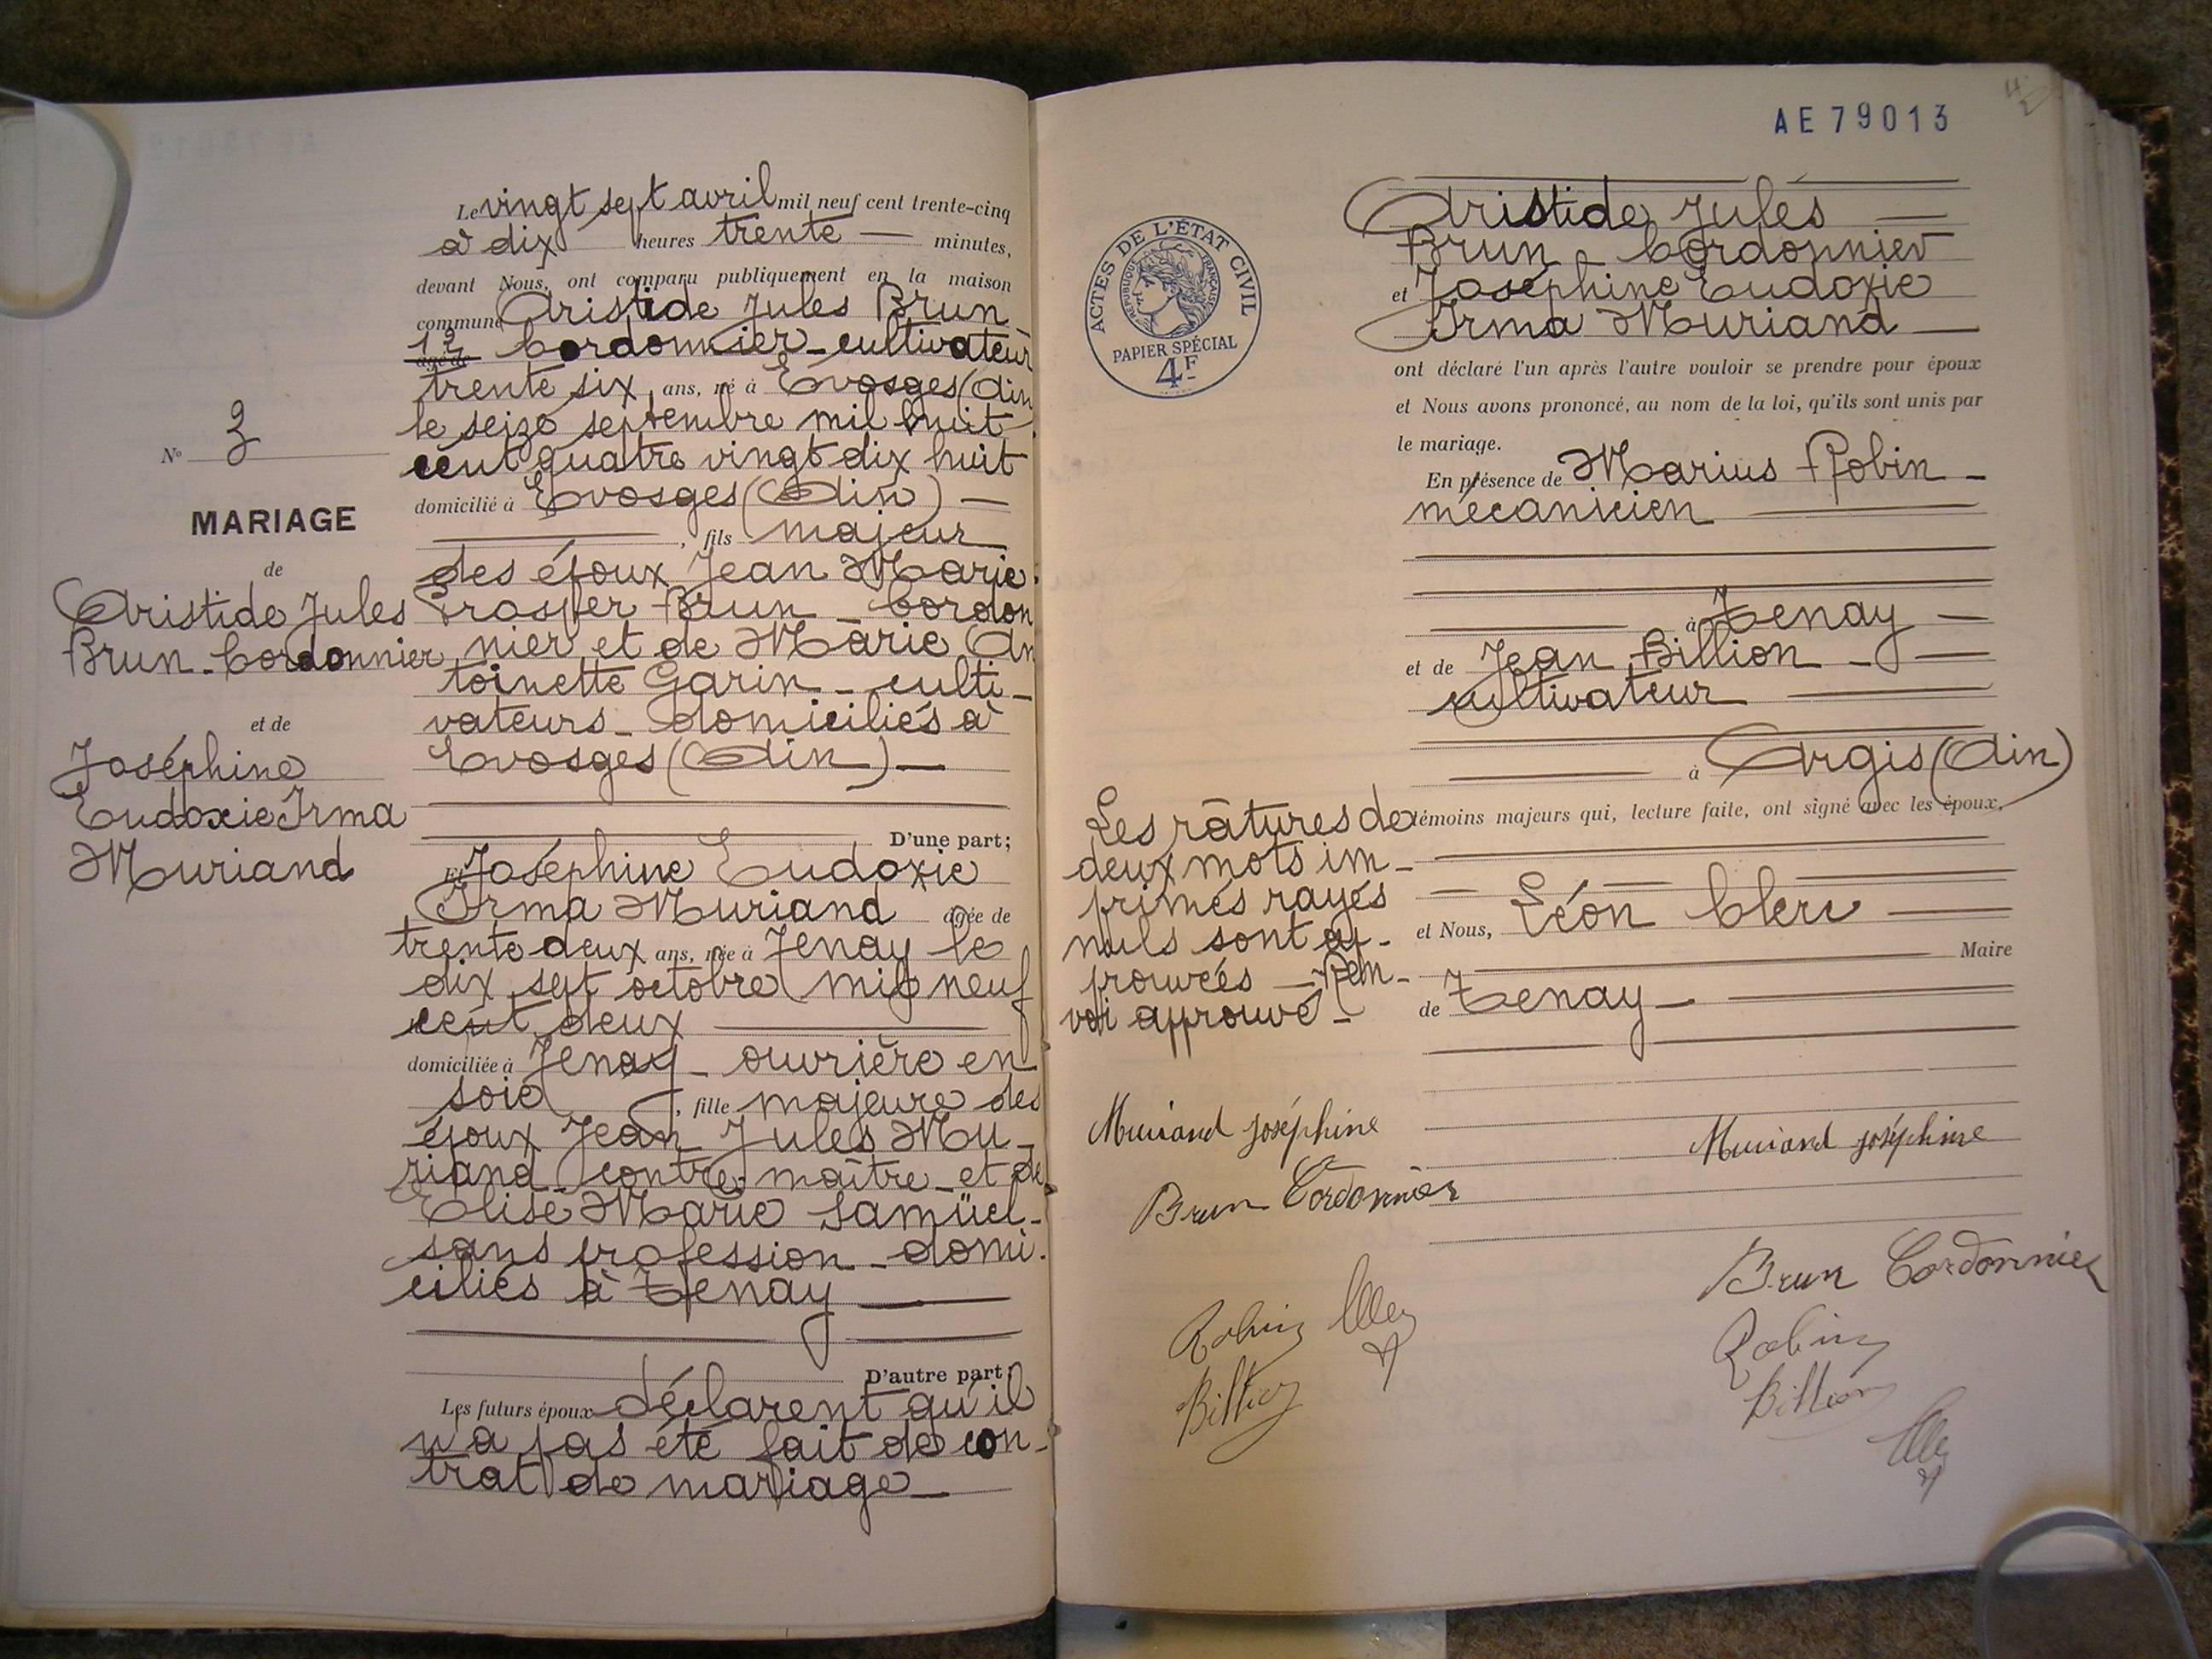 Le vingt sept avril mil neuf cent trente-cinq
à dix heures trente — minutes,
devant Nous, ont comparu publiquement en la maison
commune Aristide Jules Brun
Cordonnier - cultivateur
trente six ans, né à Evosges (Ain
le seize septembre mil huit
cent quatre vingt dix huit
domicilié à Evosges (Ain) —
, fils majeur
des époux Jean Marie
Prosper Brun - Cordon
nier et de Marie An
toinette Garin - culti-
vateurs - domiciliés à
Evosges (Ain) —
D'une part;
Et Joséphine Eudoxie
Irma Muriand agée de
trente deux ans, née à Tenay le
dix sept octobre mil neuf
cent deux
domiciliée à Tenay - ouvrière en
soie , fille majeure des
époux Jean Jules Mu-
riand - contre-maître - et de
Elise Marie Samüel -
sans profession - domi-
ciliés à Tenay
D'autre part;
Les futurs époux déclarent qu'il
n'a pas été fait de con-
trat de mariage -
N° 3
MARIAGE
de
Aristide Jules
Brun-Cordonnier
et de
Joséphine
Eudoxie Irma
Muriand
AE79013
ACTES DE L'ÉTAT CIVIL
RÉPUBLIQUE FRANÇAISE
PAPIER SPÉCIAL
4F
Aristide Jules —
Brun - Cordonnier
et Joséphine Eudoxie
Irma Muriand —
ont déclaré l'un après l'autre vouloir se prendre pour époux
et Nous avons prononcé, au nom de la loi, qu'ils sont unis par
le mariage.
En présence de Marius Robin -
mécanicien
à Tenay —
et de Jean Billion -
cultivateur
à Argis (Ain)
témoins majeurs qui, lecture faite, ont signé avec les époux,
et Nous, Léon Clerc
Maire
de Tenay -
Les râtures de
deux mots im-
primés rayés
nuls sont ap-
prouvées - Ren-
voi approuvé -
Muriand Joséphine
Brun Cordonnier
Robin
Billion
Muriand joséphine
Brun Cordonnier
Robin
Billion